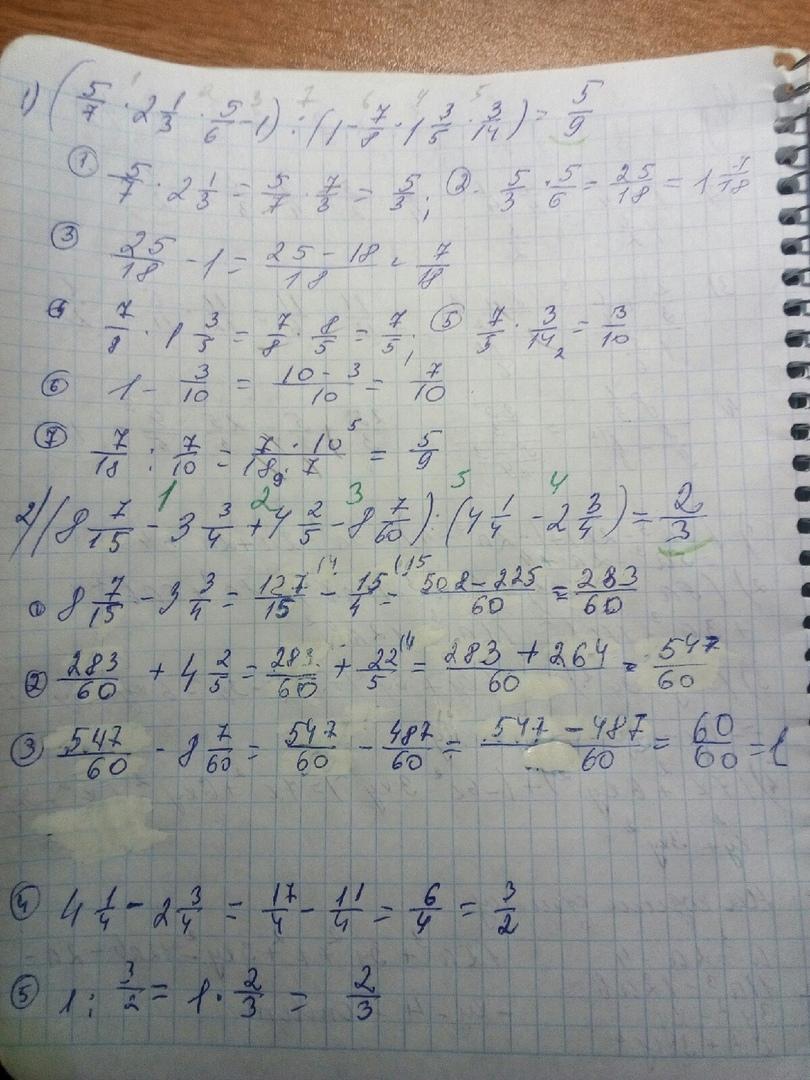 1) (5/7 · 2 1/3 · 5/6 - 1) : (1 - 7/8 · 1 3/5 · 3/14) = 5/9
① 5/7 · 2 1/3 = 5/7 · 7/3 = 5/3; ② 5/3 · 5/6 = 25/18 = 1 7/18
③ 25/18 - 1 = 25 - 18/18 = 7/18
4 7/8 · 1 3/5 = 7/8 · 8/5 = 7/5; ⑤ 7/5 · 3/14 2 = 3/10
⑥ 1 - 3/10 = 10 - 3/10 = 7/10
⑦ 7/18 : 7/10 = 7 · 10 5/18 9 · 7 = 5/9
1 2 3 5 4
2) (8 7/15 - 3 3/4 + 4 2/5 - 8 7/60) : (4 1/4 - 2 3/4) = 2/3
① 8 7/15 - 3 3/4 = 127/15 (4 - 15/4 (15 = 508 - 225/60 = 283/60
② 283/60 + 4 2/5 = 283/60 + 22/5 (4 = 283 + 264/60 = 547/60
③ 547/60 - 8 7/60 = 547/60 - 487/60 = 547 - 487/60 = 60/60 = 1
④ 4 1/4 - 2 3/4 = 17/4 - 11/4 = 6/4 = 3/2
⑤ 1 : 3/2 = 1 · 2/3 = 2/3